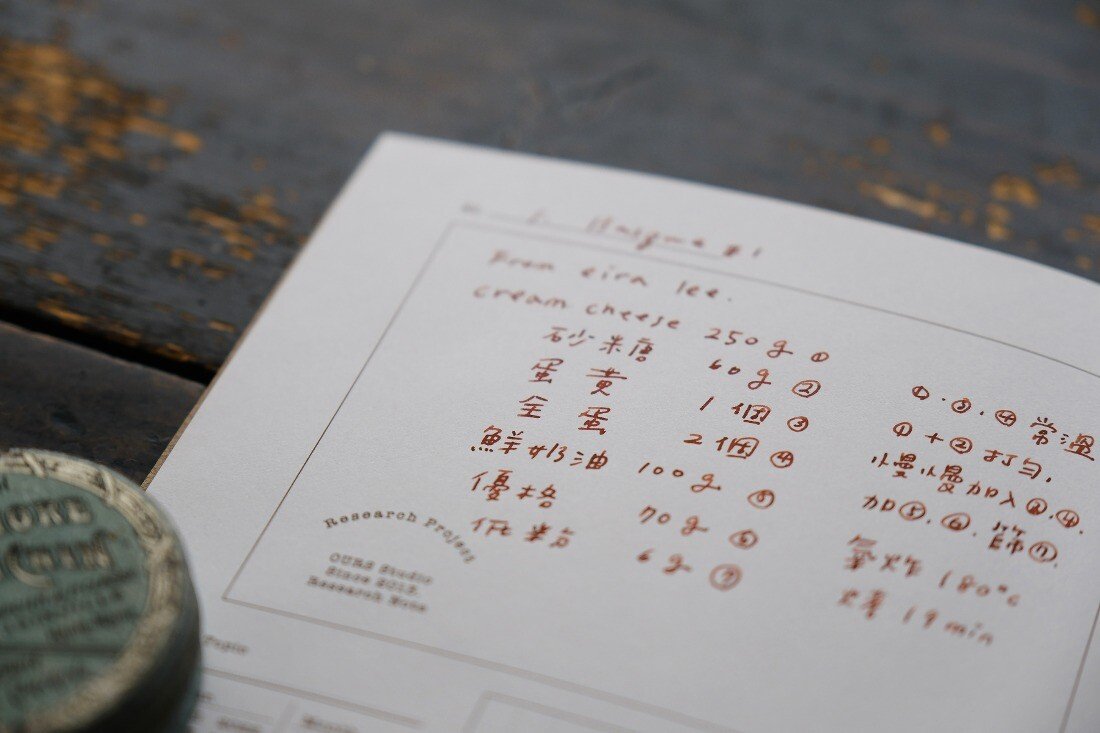 #1
From eira lee.
cream cheese 250g ①
砂糖 60g ②
蛋黄 1個 ③
全蛋 2個 ④
鮮奶油 100g ⑤
優格 70g ⑥
低粉 6g ⑦
①.③.④ 常溫
①+② 打勻,
慢慢加入③.④.
加⑤.⑥.篩⑦.
180°c
19min
Research Project
OURS Studio
Since 2012
Research Note